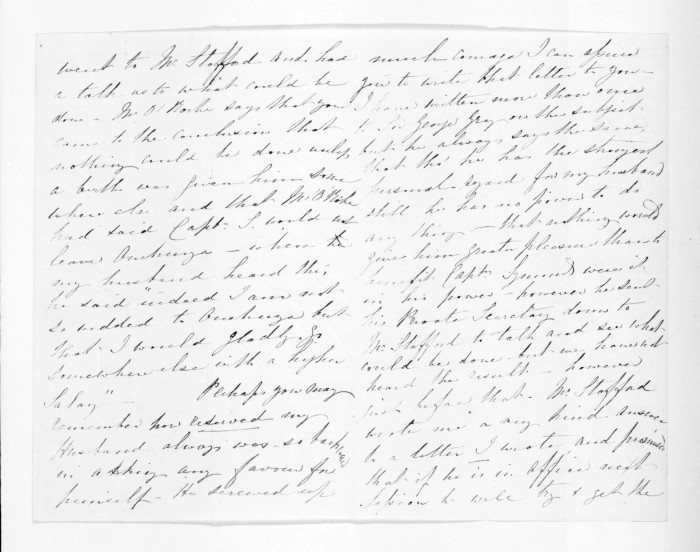 went to Mr Stafford and had
a talk as to what could be
done - Mr O'Rorke says that you
came to the conclusion that
nothing could be done unless
a berth was given him some
where else and that Mr O'Rorke
had said Capt. S. would not
leave Onehunga - when
my husband heard this
he said "indeed I am not
so wedded to Onehunga but
that I would gladly go
somewhere else with a higher
Salary" - Perhaps you may
remember how reserved my
Husband always was - so backward
in asking any favour for
himself - He screwed up
much courage I can assure
you to write that letter to you -
I have written more than once
to Sir George Grey on the subject
but he always says the same,
that tho' he has the strongest
personal regard for my husband
still he has no power to do
any thing - that nothing would
give him greater pleasure than to
benefit Capt. Symonds were it
in his power - however he sent
his Private Secretary down to
Mr Stafford to talk and see what
could be done - but we have not
heard the result - however
just before that Mr Stafford
wrote me a very kind answer
to a letter I wrote, and promises
that if he is in office next
Session he will try & get the